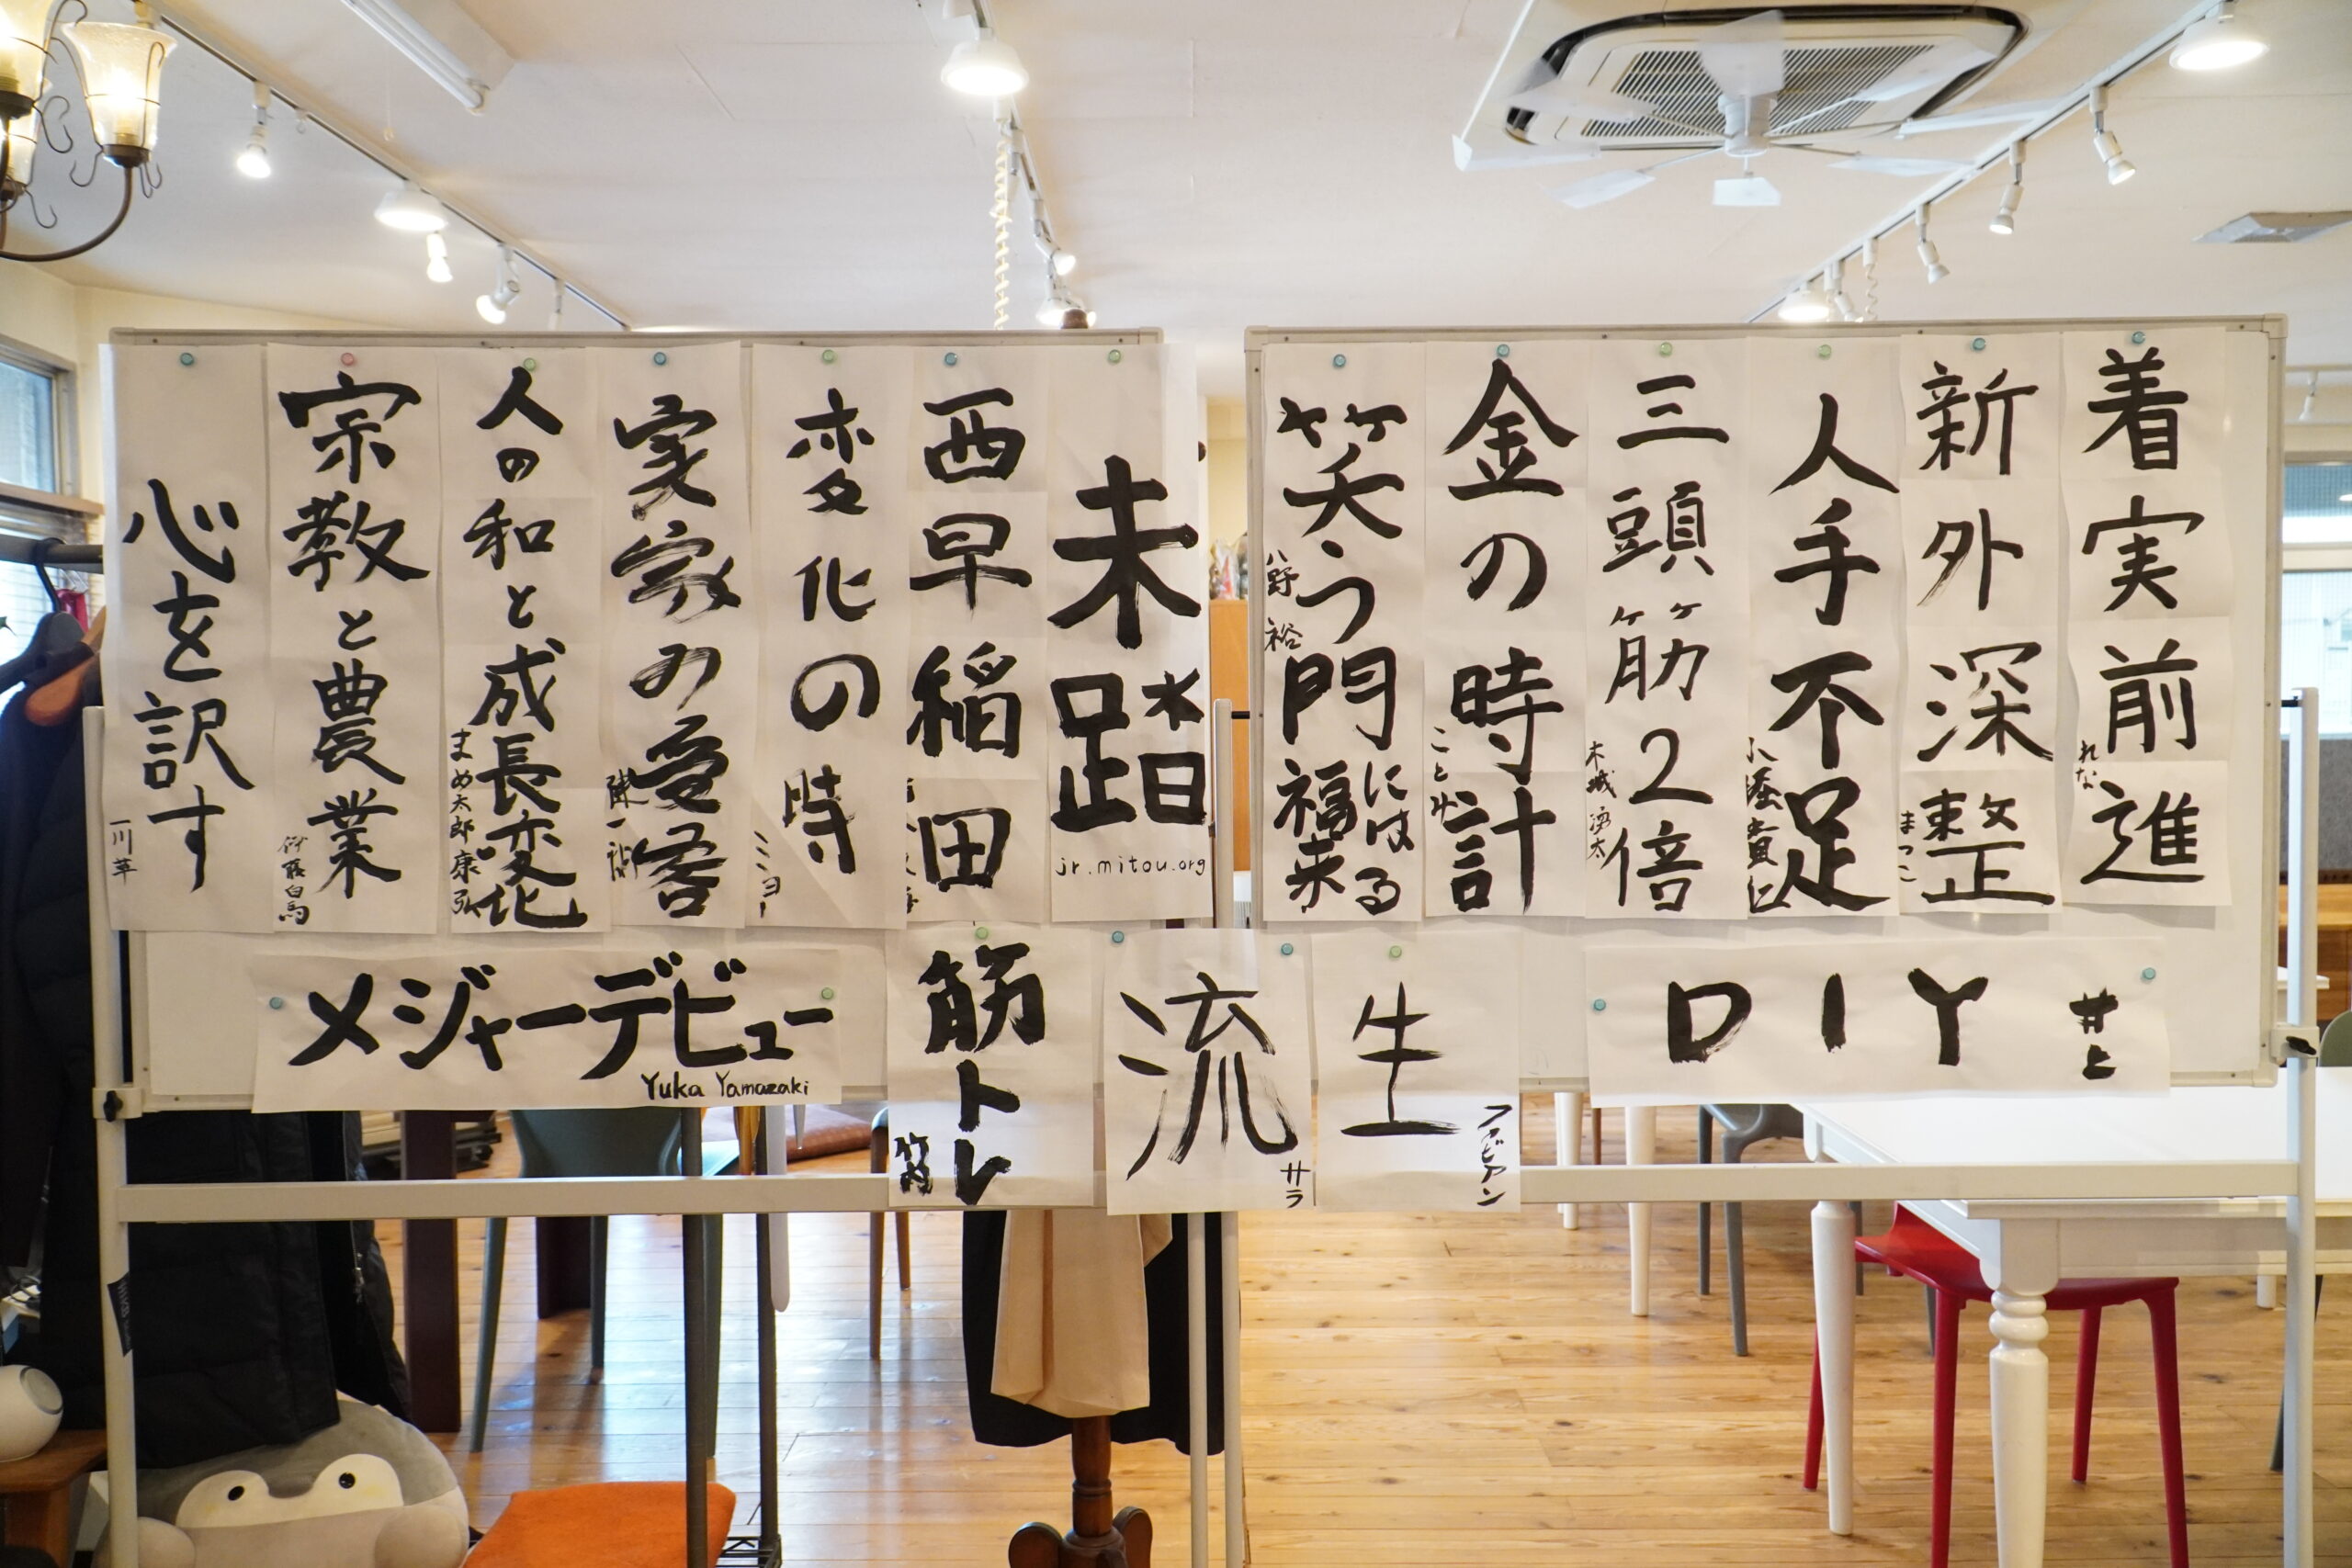 着実前進
れな
新外深整
まつこ
人手不足
三頭筋2倍
木城 湧太
金の時計
笑う門には福来る
未踏
jr.mitou.org
西早稲田
変化の時
ミミヨー
実家の受容
陳一
人の和と成長変化
まめ太郎康弘
宗教と農業
心を訳す
一川 革
DIY
井上
生
ファビアン
流
サラ
筋トレ
メジャーデビュー
Yuka Yamazaki